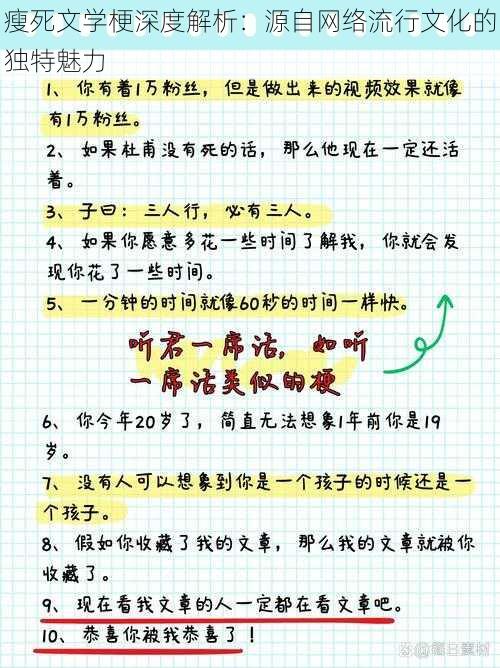 瘦死文学梗深度解析：源自网络流行文化的
独特魅力
1、你有着1万粉丝，但是做出来的视频效果就像
有1万粉丝。
2、如果杜甫没有死的话，那么他现在一定还活
着。
3、子曰：三人行，必有三人。
4、如果你愿意多花一些时间了解我，你就会发
现你花了一些时间。
5、一分钟的时间就像60秒的时间一样快。
听君一席话，如听
一席话类似的梗
6、你今年20岁了，简直无法想象1年前你是19
岁。
7、没有人可以想象到你是一个孩子的时候还是一
个孩子。
8、假如你收藏了我的文章，那么我的文章就被你
收藏了。
9、现在看我文章的人一定都在看文章吧。
10、恭喜你被我恭喜了！
@每日素材